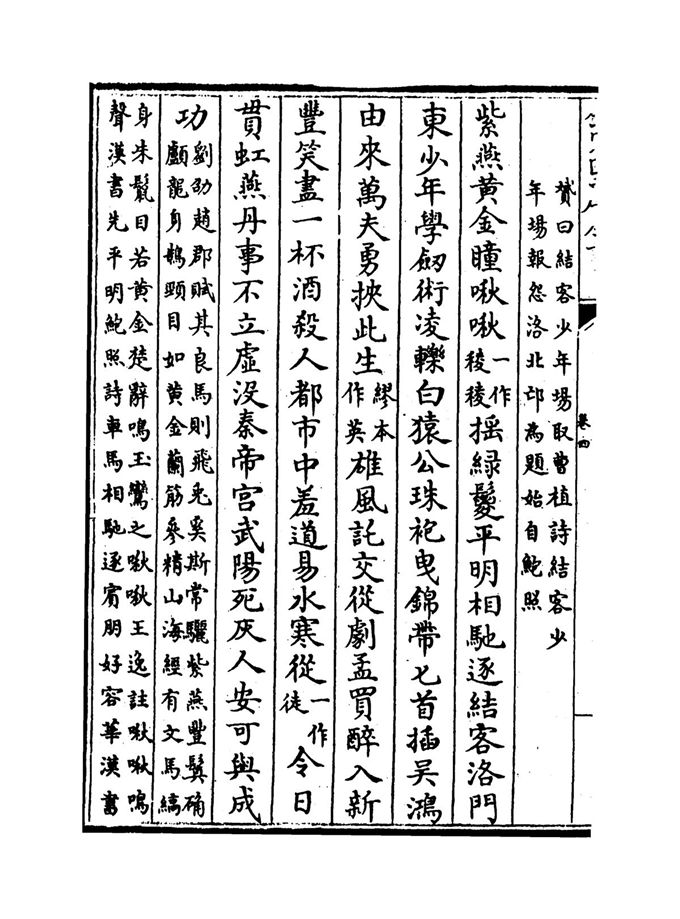 贊曰結客少年場取曹植詩結客少
年場報怨洛北邙為題始自鮑照
紫燕黄金瞳啾啾一作稜稜揺緑鬉平明相馳逐結客洛門
東少年學劒術凌轢白猿公珠袍曳錦帶匕首插吳鴻
由來萬夫勇挾此生繆本作英雄風託交從劇孟買醉入新
豐笑盡一杯酒殺人都市中羞道易水寒從一作徒令日
貫虹燕丹事不立虛没秦帝宫武陽死灰人安可與成
功劉劭趙郡賦其良馬則飛兎奚斯常驪紫燕豐鬉确
顱龍身鵝頸目如黄金蘭筋參精山海經有文馬縞
身朱鬛目若黄金楚辭鳴玉鸞之啾啾王逸註啾啾鳴
聲漢書先平明鮑照詩車馬相馳逐賓朋好容華漢書
卷四